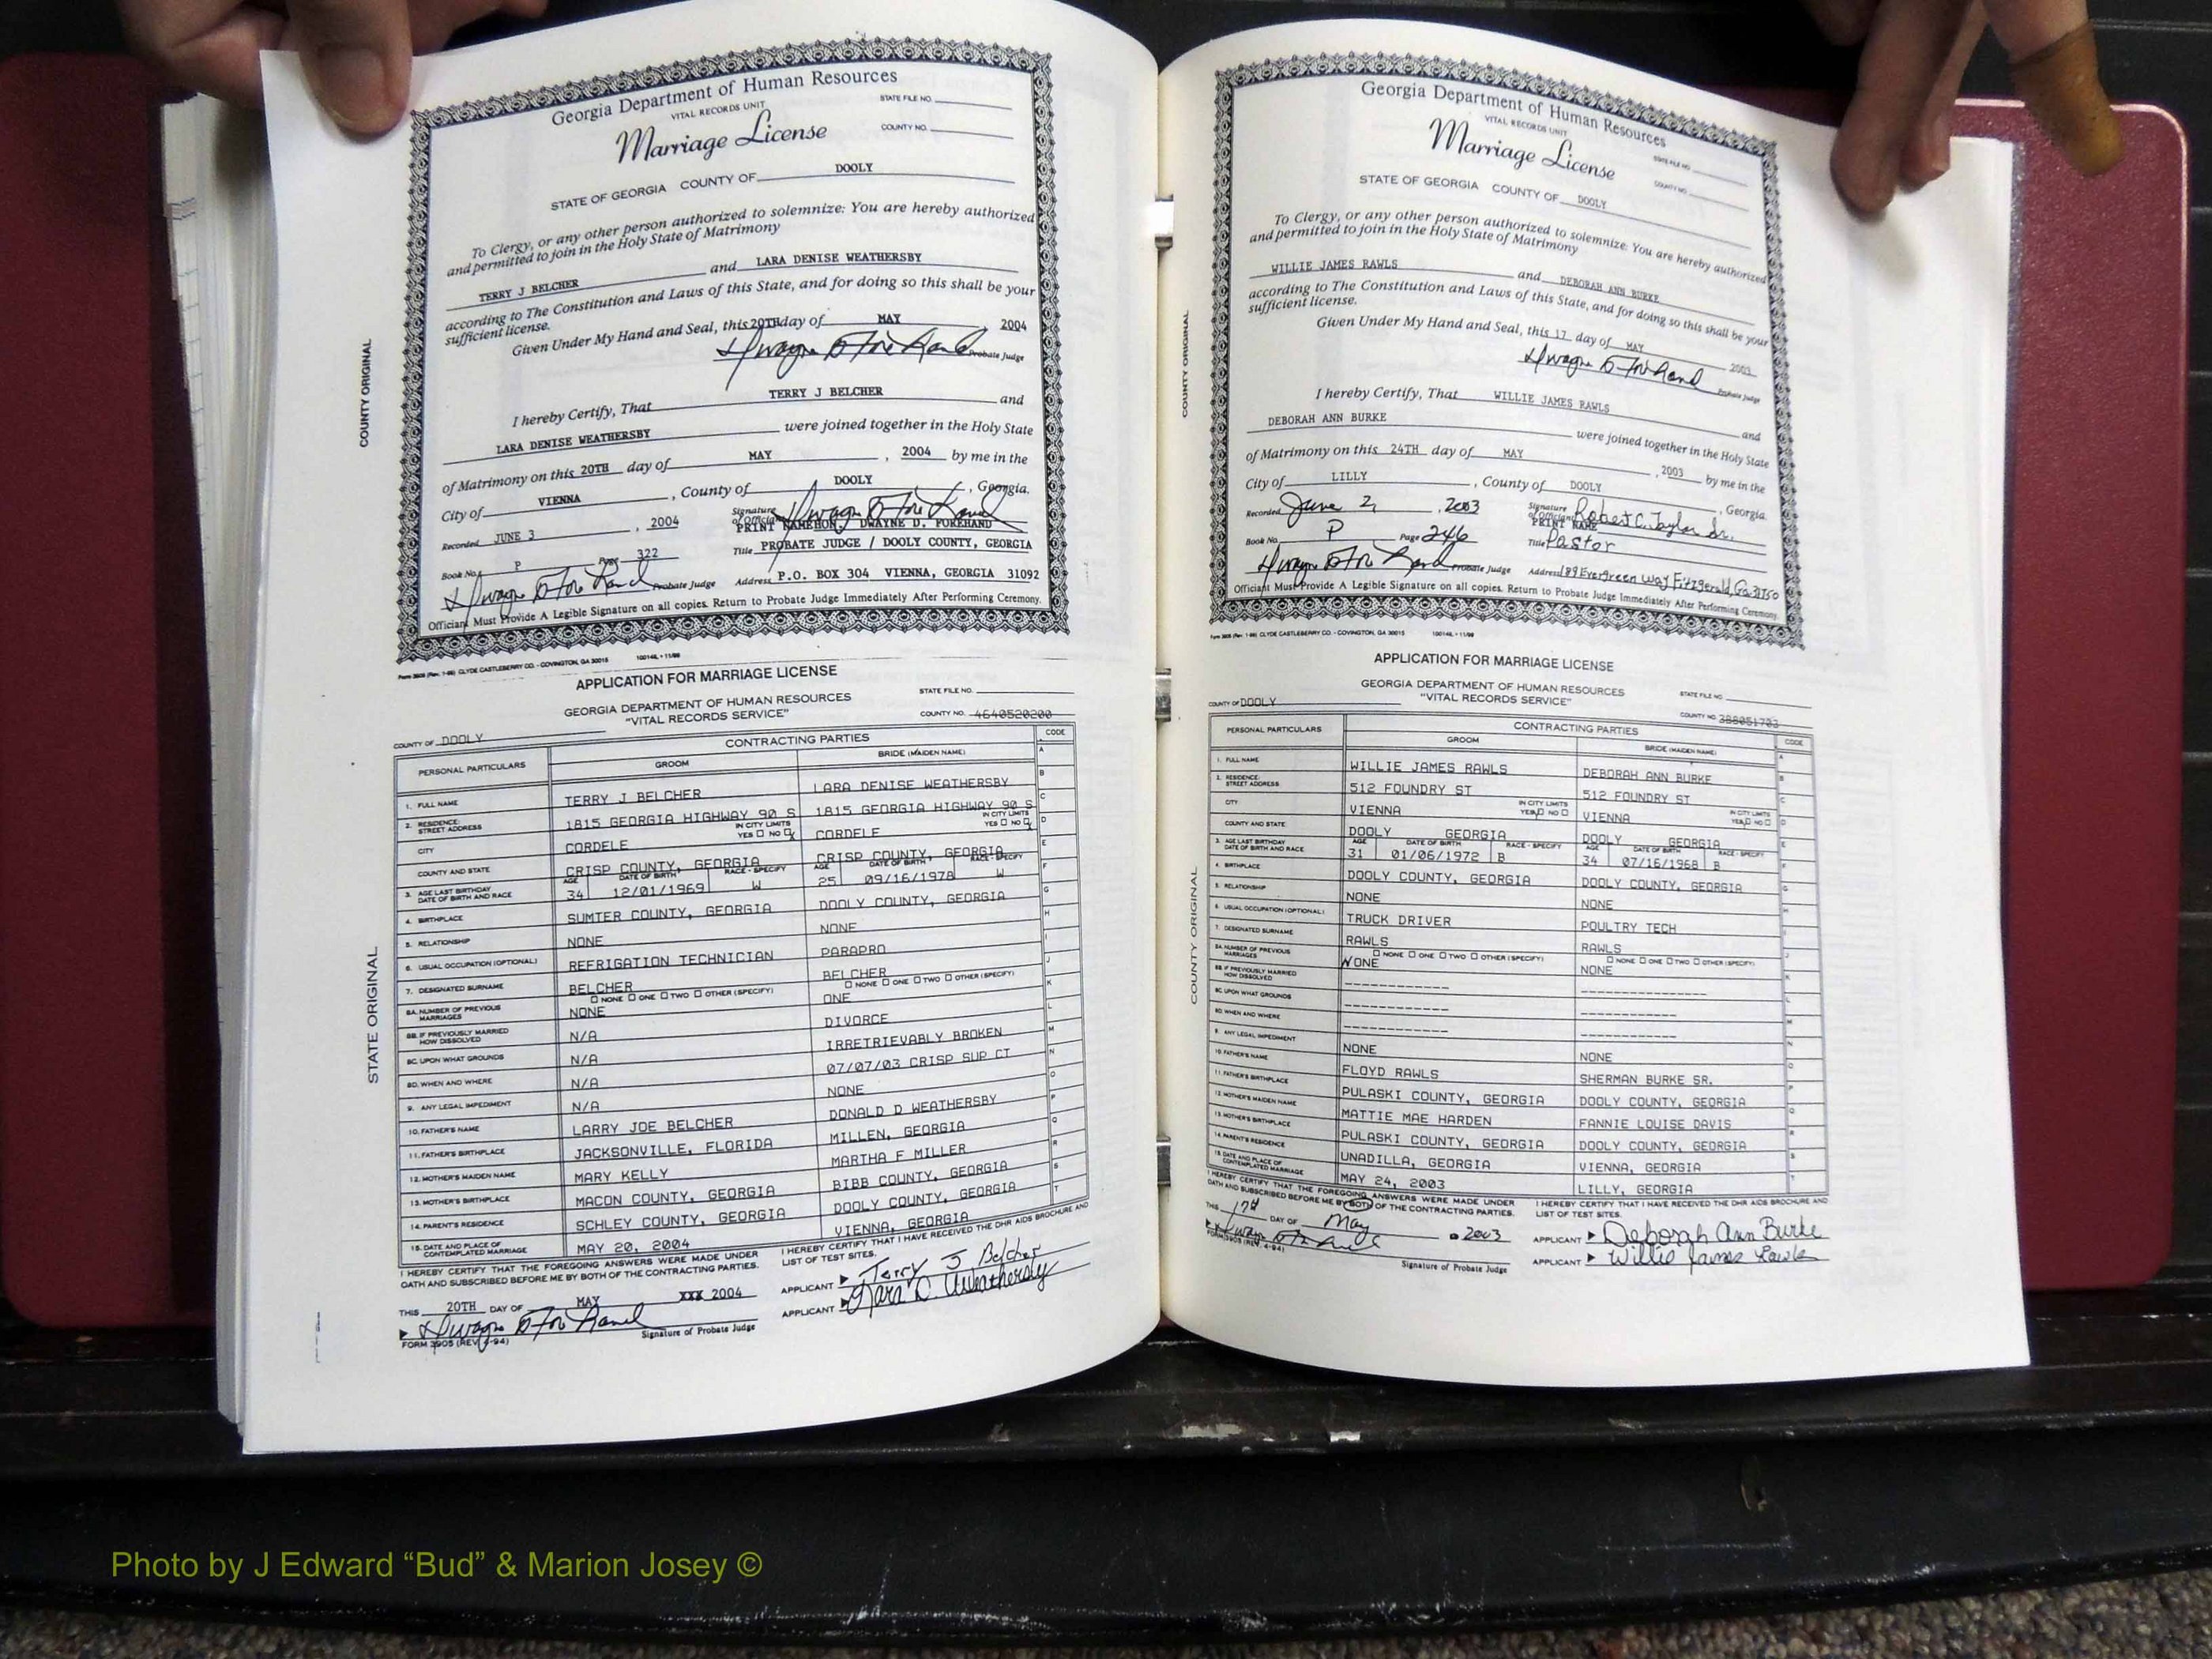 Georgia Department of Human Resources
VITAL RECORDS UNIT
STATE FILE NO.
Marriage License
COUNTY NO.
STATE OF GEORGIA COUNTY OF DOOLY
To Clergy, or any other person authorized to solemnize: You are hereby authorized
and permitted to join in the Holy State of Matrimony
TERRY J BELCHER and LARA DENISE WEATHERSBY
according to The Constitution and Laws of this State, and for doing so this shall be your
sufficient license.
Given Under My Hand and Seal, this 20TH day of MAY 2004
Probate Judge
I hereby Certify, That TERRY J BELCHER and
LARA DENISE WEATHERSBY were joined together in the Holy State
of Matrimony on this 20TH day of MAY, 2004 by me in the
City of VIENNA, County of DOOLY, Georgia.
Recorded JUNE 3, 2004 Signature of Official
PRINT NAME HON. DWAYNE D. FOREHAND
Book No. P Page 322 Title PROBATE JUDGE / DOOLY COUNTY, GEORGIA
Probate Judge Address P.O. BOX 304 VIENNA, GEORGIA 31092
Officiant Must Provide A Legible Signature on all copies. Return to Probate Judge Immediately After Performing Ceremony.
COUNTY ORIGINAL
Form 3905 (Rev. 1-99) CLYDE CASTLEBERRY CO. - COVINGTON, GA 30015
APPLICATION FOR MARRIAGE LICENSE
GEORGIA DEPARTMENT OF HUMAN RESOURCES
"VITAL RECORDS SERVICE"
STATE FILE NO.
COUNTY NO. 4640520200
COUNTY OF DOOLY
PERSONAL PARTICULARS CONTRACTING PARTIES CODE
GROOM BRIDE (MAIDEN NAME)
1. FULL NAME TERRY J BELCHER LARA DENISE WEATHERSBY
2. RESIDENCE: STREET ADDRESS 1815 GEORGIA HIGHWAY 90 S 1815 GEORGIA HIGHWAY 90 S
CITY CORDELE IN CITY LIMITS YES NO CORDELE IN CITY LIMITS YES NO
COUNTY AND STATE CRISP COUNTY, GEORGIA CRISP COUNTY, GEORGIA
3. AGE LAST BIRTHDAY DATE OF BIRTH AND RACE AGE 34 DATE OF BIRTH 12/01/1969 RACE - SPECIFY W AGE 25 DATE OF BIRTH 09/16/1978 RACE - SPECIFY W
4. BIRTHPLACE SUMTER COUNTY, GEORGIA DOOLY COUNTY, GEORGIA
5. RELATIONSHIP NONE NONE
6. USUAL OCCUPATION (OPTIONAL) REFRIGATION TECHNICIAN PARAPRO
7. DESIGNATED SURNAME BELCHER BELCHER
8A. NUMBER OF PREVIOUS MARRIAGES NONE ONE TWO OTHER (SPECIFY) NONE NONE ONE TWO OTHER (SPECIFY) ONE
8B. IF PREVIOUSLY MARRIED HOW DISSOLVED N/A DIVORCE
8C. UPON WHAT GROUNDS N/A IRRETRIEVABLY BROKEN
8D. WHEN AND WHERE N/A 07/07/03 CRISP SUP CT
9. ANY LEGAL IMPEDIMENT N/A NONE
10. FATHER'S NAME LARRY JOE BELCHER DONALD D WEATHERSBY
11. FATHER'S BIRTHPLACE JACKSONVILLE, FLORIDA MILLEN, GEORGIA
12. MOTHER'S MAIDEN NAME MARY KELLY MARTHA F MILLER
13. MOTHER'S BIRTHPLACE MACON COUNTY, GEORGIA BIBB COUNTY, GEORGIA
14. PARENT'S RESIDENCE SCHLEY COUNTY, GEORGIA DOOLY COUNTY, GEORGIA
15. DATE AND PLACE OF CONTEMPLATED MARRIAGE MAY 20, 2004 VIENNA, GEORGIA
I HEREBY CERTIFY THAT THE FOREGOING ANSWERS WERE MADE UNDER
OATH AND SUBSCRIBED BEFORE ME BY BOTH OF THE CONTRACTING PARTIES.
I HEREBY CERTIFY THAT I HAVE RECEIVED THE DHR AIDS BROCHURE AND
LIST OF TEST SITES.
THIS 20TH DAY OF MAY XXX 2004
APPLICANT Terry J Belcher
APPLICANT Lara D. Weathersby
Signature of Probate Judge
FORM 3905 (REV. 4-94)
STATE ORIGINAL
Georgia Department of Human Resources
VITAL RECORDS UNIT
Marriage License
STATE FILE NO.
COUNTY NO.
STATE OF GEORGIA COUNTY OF DOOLY
To Clergy, or any other person authorized to solemnize: You are hereby authorized
and permitted to join in the Holy State of Matrimony
WILLIE JAMES RAWLS and DEBORAH ANN BURKE
according to The Constitution and Laws of this State, and for doing so this shall be your
sufficient license.
Given Under My Hand and Seal, this 17 day of MAY 2003
Probate Judge
I hereby Certify, That WILLIE JAMES RAWLS and
DEBORAH ANN BURKE were joined together in the Holy State
of Matrimony on this 24TH day of MAY, 2003 by me in the
City of LILLY, County of DOOLY, Georgia.
Recorded June 2, 2003 Signature of Official Robert C. Taylor Sr.
PRINT NAME
Book No. P Page 246 Title Pastor
Probate Judge Address 189 Evergreen Way Fitzgerald, Ga 31750
Officiant Must Provide A Legible Signature on all copies. Return to Probate Judge Immediately After Performing Ceremony.
COUNTY ORIGINAL
Form 3905 (Rev. 1-99) CLYDE CASTLEBERRY CO. - COVINGTON, GA 30015
APPLICATION FOR MARRIAGE LICENSE
GEORGIA DEPARTMENT OF HUMAN RESOURCES
"VITAL RECORDS SERVICE"
STATE FILE NO.
COUNTY NO. 388051703
COUNTY OF DOOLY
PERSONAL PARTICULARS CONTRACTING PARTIES CODE
GROOM BRIDE (MAIDEN NAME)
1. FULL NAME WILLIE JAMES RAWLS DEBORAH ANN BURKE
2. RESIDENCE: STREET ADDRESS 512 FOUNDRY ST 512 FOUNDRY ST
CITY VIENNA IN CITY LIMITS YES NO VIENNA IN CITY LIMITS YES NO
COUNTY AND STATE DOOLY GEORGIA DOOLY GEORGIA
3. AGE LAST BIRTHDAY DATE OF BIRTH AND RACE AGE 31 DATE OF BIRTH 01/06/1972 RACE - SPECIFY B AGE 34 07/16/1968 RACE - SPECIFY B
4. BIRTHPLACE DOOLY COUNTY, GEORGIA DOOLY COUNTY, GEORGIA
5. RELATIONSHIP NONE NONE
6. USUAL OCCUPATION (OPTIONAL) TRUCK DRIVER POULTRY TECH
7. DESIGNATED SURNAME RAWLS RAWLS
8A. NUMBER OF PREVIOUS MARRIAGES NONE ONE TWO OTHER (SPECIFY) NONE NONE ONE TWO OTHER (SPECIFY) NONE
8B. IF PREVIOUSLY MARRIED HOW DISSOLVED
8C. UPON WHAT GROUNDS
8D. WHEN AND WHERE
9. ANY LEGAL IMPEDIMENT NONE NONE
10. FATHER'S NAME FLOYD RAWLS SHERMAN BURKE SR.
11. FATHER'S BIRTHPLACE PULASKI COUNTY, GEORGIA DOOLY COUNTY, GEORGIA
12. MOTHER'S MAIDEN NAME MATTIE MAE HARDEN FANNIE LOUISE DAVIS
13. MOTHER'S BIRTHPLACE PULASKI COUNTY, GEORGIA DOOLY COUNTY, GEORGIA
14. PARENT'S RESIDENCE UNADILLA, GEORGIA VIENNA, GEORGIA
15. DATE AND PLACE OF CONTEMPLATED MARRIAGE MAY 24, 2003 LILLY, GEORGIA
I HEREBY CERTIFY THAT THE FOREGOING ANSWERS WERE MADE UNDER
OATH AND SUBSCRIBED BEFORE ME BY BOTH OF THE CONTRACTING PARTIES.
I HEREBY CERTIFY THAT I HAVE RECEIVED THE DHR AIDS BROCHURE AND
LIST OF TEST SITES.
THIS 17th DAY OF May 2003
APPLICANT Deborah Ann Burke
APPLICANT Willie James Rawls
Signature of Probate Judge
FORM 3905 (REV. 4-94)
COUNTY ORIGINAL
Photo by J Edward “Bud” & Marion Josey ©